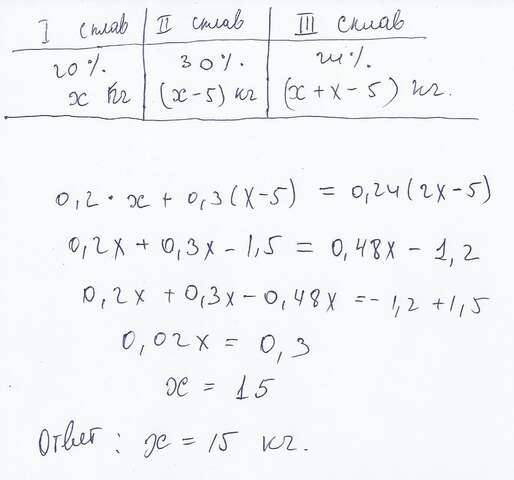 I сплав II сплав III сплав
20%. 30%. 24%.
x кг (x-5) кг (x+x-5) кг.
0,2 · x + 0,3(x-5) = 0,24(2x-5)
0,2x + 0,3x - 1,5 = 0,48x - 1,2
0,2x + 0,3x - 0,48x = -1,2 + 1,5
0,02x = 0,3
x = 15
Ответ: x = 15 кг.